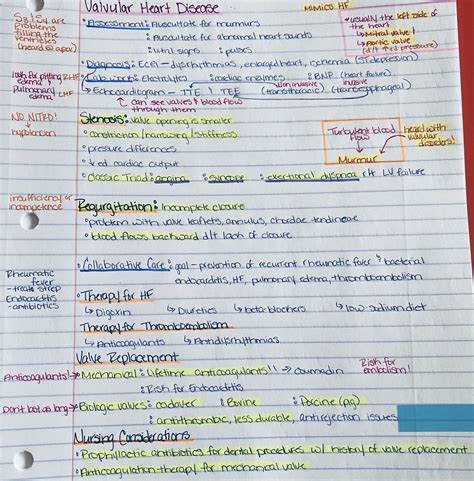 Valvular Heart Disease
MIMICS HF
S3 + S4 are
problems
filling the
ventricles
(heard @ apex)
• Assessment: Auscultate for murmurs
: Auscultate for abnormal heart sounds
: Vital signs : pulses
*usually the left side of
the heart
↳ Mitral valve!
↳ Aortic valve
(d/t ↑ed pressure)
• Diagnosis: ECG - dysrhythmias, enlarged heart, ischemia (ST depression)
look for pitting edema, RHF
Pulmonary edema, LHF
• Lab work: Electrolytes : cardiac enzymes : BNP (heart failure)
↳ Echocardiogram - TTE non invasive (transthoracic) TEE invasive (transesophageal)
↑ can see valves + blood flow
through them
NO NITRO!
hypotension
Stenosis: valve opening is smaller
• constriction/narrowing/stiffness
• pressure differences
• ↓ed cardiac output
• Classic Triad: angina : syncope : exertional dyspnea r/t LV failure
Turbulent blood
flow
heard with
valvular
disorders!
Murmur
insufficiency or
incompetence
Regurgitation: Incomplete closure
• problem with valve leaflets, annulus, chordae tendineae
• blood flows backward d/t lack of closure
• Collaborative Care: goal - prevention of recurrent rheumatic fever & bacterial
endocarditis, HF, pulmonary edema, thromboembolism
Rheumatic
fever
- treat strep
Endocarditis
- antibiotics
• Therapy for HF
↳ Digoxin ↳ Diuretics ↳ beta-blockers ↳ low sodium diet
Therapy for Thromboembolism
↳ Anticoagulants ↳ Antidysrhythmics
Valve Replacement
Anticoagulants! → • Mechanical: Lifetime anticoagulants!! → coumadin
Risk for
embolism!
: Risk for Endocarditis
Don't last as long → • Biologic valves: cadaver : Bovine : Porcine (pg)
: antithrombic, less durable, antirejection issues
Nursing Considerations
• Prophylactic antibiotics for dental procedures w/ history of valve replacement
• Anticoagulation-therapy for mechanical valve